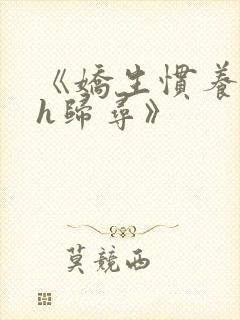 《嬌生慣養
h歸尋》
莫競西